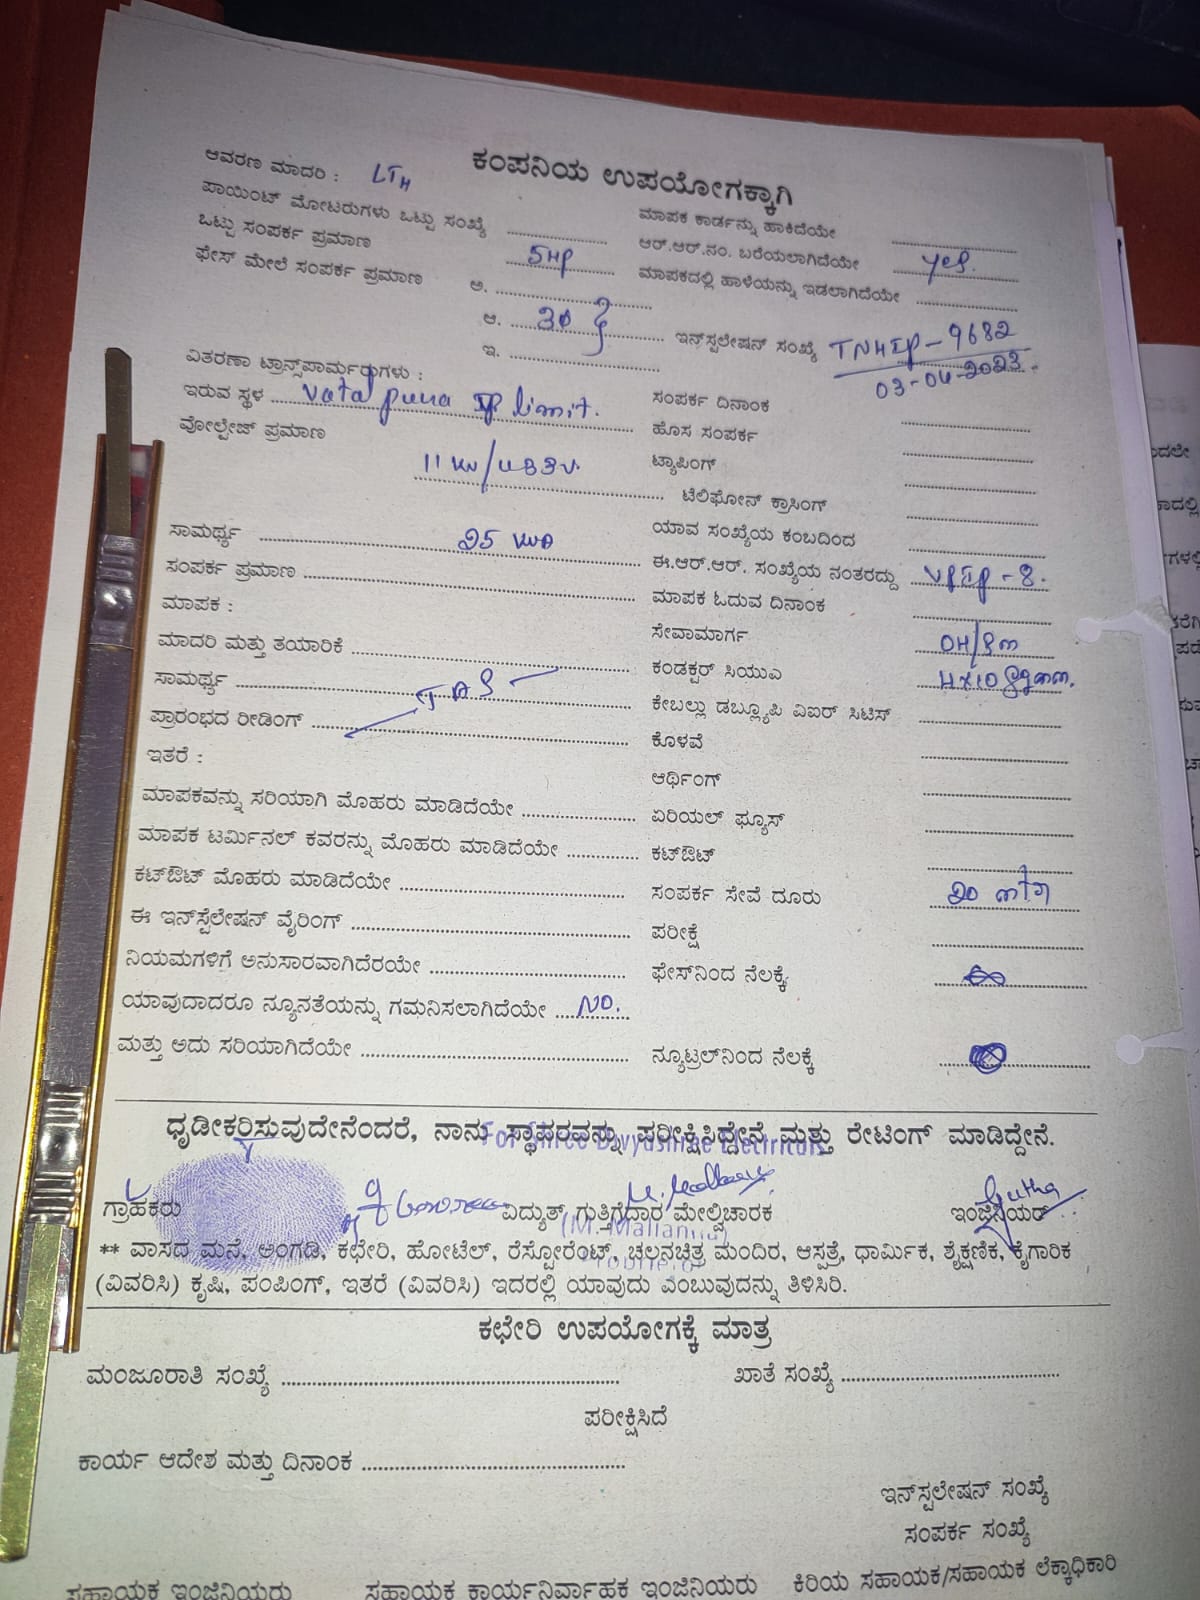 ಕಂಪನಿಯ ಉಪಯೋಗಕ್ಕಾಗಿ
ಆವರಣ ಮಾದರಿ : LTH
ಪಾಯಿಂಟ್ ಮೋಟರುಗಳು ಒಟ್ಟು ಸಂಖ್ಯೆ ............ ಮಾಪಕ ಕಾರ್ಡನ್ನು ಹಾಕಿದೆಯೇ ............
ಒಟ್ಟು ಸಂಪರ್ಕ ಪ್ರಮಾಣ 5HP ಆರ್.ಆರ್.ನಂ. ಬರೆಯಲಾಗಿದೆಯೇ yes.
ಫೇಸ್ ಮೇಲೆ ಸಂಪರ್ಕ ಪ್ರಮಾಣ ಅ. ............ ಮಾಪಕದಲ್ಲಿ ಹಾಳೆಯನ್ನು ಇಡಲಾಗಿದೆಯೇ ............
ಆ. 30 } ಇನ್‌ಸ್ಟಲೇಷನ್ ಸಂಖ್ಯೆ TNHIP-9682
ಇ. ............ 03-04-2023
ವಿತರಣಾ ಟ್ರಾನ್ಸ್‌ಫಾರ್ಮರುಗಳು : ಸಂಪರ್ಕ ದಿನಾಂಕ ............
ಇರುವ ಸ್ಥಳ Vatalpura IP limit. ಹೊಸ ಸಂಪರ್ಕ ............
ವೋಲ್ಟೇಜ್ ಪ್ರಮಾಣ 11 kv/433v. ಟ್ಯಾಪಿಂಗ್ ............
ಟೆಲಿಫೋನ್ ಕ್ರಾಸಿಂಗ್ ............
ಸಾಮರ್ಥ್ಯ 25 kva ಯಾವ ಸಂಖ್ಯೆಯ ಕಂಬದಿಂದ ............
ಸಂಪರ್ಕ ಪ್ರಮಾಣ ............ ಈ.ಆರ್.ಆರ್. ಸಂಖ್ಯೆಯ ನಂತರದ್ದು VPIP-8.
ಮಾಪಕ : ಮಾಪಕ ಓದುವ ದಿನಾಂಕ ............
ಮಾದರಿ ಮತ್ತು ತಯಾರಿಕೆ ............ ಸೇವಾಮಾರ್ಗ OH/sm
ಸಾಮರ್ಥ್ಯ ............ ಕಂಡಕ್ಟರ್ ಸಿಯುಎ 4x10 sqmm.
ಪ್ರಾರಂಭದ ರೀಡಿಂಗ್ ............ ಕೇಬಲ್ಲು ಡಬ್ಲ್ಯೂಪಿ ವಿಐರ್ ಸಿಟಿಸ್ ............
ಇತರೆ : ಕೊಳವೆ ............
ಆರ್ಥಿಂಗ್ ............
ಮಾಪಕವನ್ನು ಸರಿಯಾಗಿ ಮೊಹರು ಮಾಡಿದೆಯೇ ............ ಏರಿಯಲ್ ಫ್ಯೂಸ್ ............
ಮಾಪಕ ಟರ್ಮಿನಲ್ ಕವರನ್ನು ಮೊಹರು ಮಾಡಿದೆಯೇ ............ ಕಟ್‌ಔಟ್ ............
ಕಟ್‌ಔಟ್ ಮೊಹರು ಮಾಡಿದೆಯೇ ............ ಸಂಪರ್ಕ ಸೇವೆ ದೂರು 20 mtr
ಈ ಇನ್‌ಸ್ಟೆಲೇಷನ್ ವೈರಿಂಗ್ ............ ಪರೀಕ್ಷೆ ............
ನಿಯಮಗಳಿಗೆ ಅನುಸಾರವಾಗಿದೆರಯೇ ............ ಫೇಸ್‌ನಿಂದ ನೆಲಕ್ಕೆ
ಯಾವುದಾದರೂ ನ್ಯೂನತೆಯನ್ನು ಗಮನಿಸಲಾಗಿದೆಯೇ NO.
ಮತ್ತು ಅದು ಸರಿಯಾಗಿದೆಯೇ ............ ನ್ಯೂಟ್ರಲ್‌ನಿಂದ ನೆಲಕ್ಕೆ
ಧೃಡೀಕರಿಸುವುದೇನೆಂದರೆ, ನಾನು ಸ್ಥಾಹರವನ್ನು ಪರೀಕ್ಷಿಸಿದ್ದೇನೆ ಮತ್ತು ರೇಟಿಂಗ್ ಮಾಡಿದ್ದೇನೆ.
ಗ್ರಾಹಕರು ವಿದ್ಯುತ್ ಗುತ್ತಿಗೆದಾರ ಮೇಲ್ವಿಚಾರಕ ಇಂಜಿನಿಯರ್
** ವಾಸದ ಮನೆ, ಅಂಗಡಿ, ಕಛೇರಿ, ಹೋಟೆಲ್, ರೆಸ್ಟೋರೆಂಟ್, ಚಲನಚಿತ್ರ ಮಂದಿರ, ಆಸ್ಪತ್ರೆ, ಧಾರ್ಮಿಕ, ಶೈಕ್ಷಣಿಕ, ಕೈಗಾರಿಕ
(ವಿವರಿಸಿ) ಕೃಷಿ, ಪಂಪಿಂಗ್, ಇತರೆ (ವಿವರಿಸಿ) ಇದರಲ್ಲಿ ಯಾವುದು ಎಂಬುವುದನ್ನು ತಿಳಿಸಿರಿ.
ಕಛೇರಿ ಉಪಯೋಗಕ್ಕೆ ಮಾತ್ರ
ಮಂಜೂರಾತಿ ಸಂಖ್ಯೆ ............ ಖಾತೆ ಸಂಖ್ಯೆ ............
ಪರೀಕ್ಷಿಸಿದೆ
ಕಾರ್ಯ ಆದೇಶ ಮತ್ತು ದಿನಾಂಕ ............
ಇನ್‌ಸ್ಟಲೇಷನ್ ಸಂಖ್ಯೆ
ಸಂಪರ್ಕ ಸಂಖ್ಯೆ
ಸಹಾಯಕ ಇಂಜಿನಿಯರು ಸಹಾಯಕ ಕಾರ್ಯನಿರ್ವಾಹಕ ಇಂಜಿನಿಯರು ಕಿರಿಯ ಸಹಾಯಕ/ಸಹಾಯಕ ಲೆಕ್ಕಾಧಿಕಾರಿ